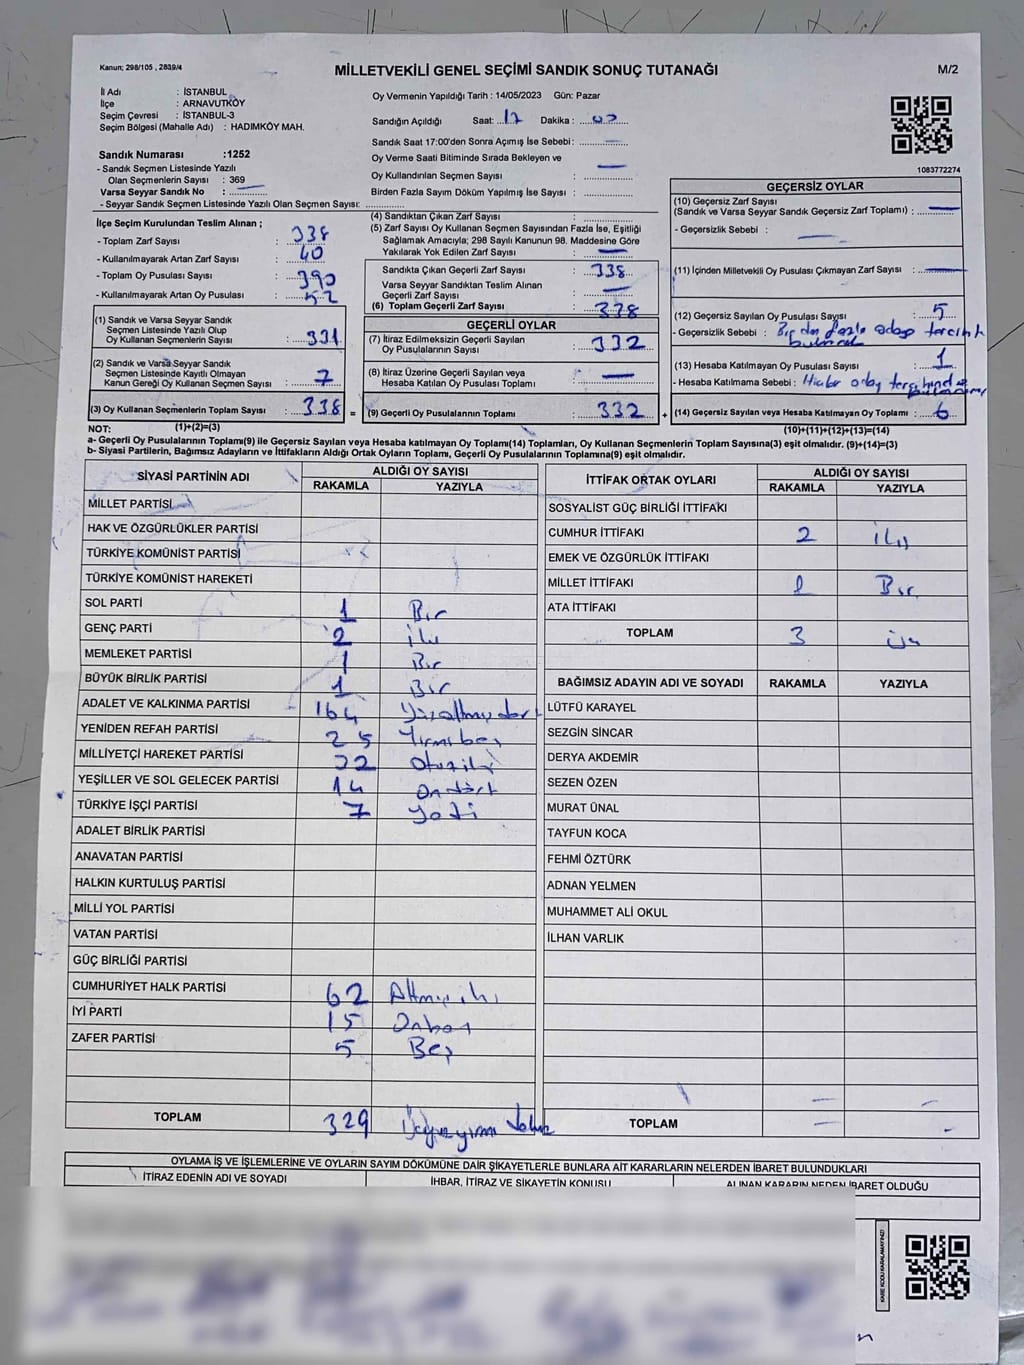 Kanun; 298/105 , 2839/4
MİLLETVEKİLİ GENEL SEÇİMİ SANDIK SONUÇ TUTANAĞI
M/2
İl Adı : İSTANBUL
İlçe : ARNAVUTKÖY
Seçim Çevresi : İSTANBUL-3
Seçim Bölgesi (Mahalle Adı) : HADIMKÖY MAH.
Sandık Numarası :1252
- Sandık Seçmen Listesinde Yazılı
Olan Seçmenlerin Sayısı : 369
Varsa Seyyar Sandık No :
- Seyyar Sandık Seçmen Listesinde Yazılı Olan Seçmen Sayısı:
Oy Vermenin Yapıldığı Tarih : 14/05/2023 Gün: Pazar
Sandığın Açıldığı Saat: 17 Dakika : 00
Sandık Saat 17:00'den Sonra Açımış İse Sebebi:
Oy Verme Saati Bitiminde Sırada Bekleyen ve
Oy Kullandırılan Seçmen Sayısı :
Birden Fazla Sayım Döküm Yapılmış İse Sayısı :
1083772274
İlçe Seçim Kurulundan Teslim Alınan ;
- Toplam Zarf Sayısı : 338
- Kullanılmayarak Artan Zarf Sayısı : 40
- Toplam Oy Pusulası Sayısı : 390
- Kullanılmayarak Artan Oy Pusulası : 52
(1) Sandık ve Varsa Seyyar Sandık
Seçmen Listesinde Yazılı Olup
Oy Kullanan Seçmenlerin Sayısı : 331
(2) Sandık ve Varsa Seyyar Sandık
Seçmen Listesinde Kayıtlı Olmayan
Kanun Gereği Oy Kullanan Seçmen Sayısı : 7
(3) Oy Kullanan Seçmenlerin Toplam Sayısı : 338 =
(1)+(2)=(3)
(4) Sandıktan Çıkan Zarf Sayısı :
(5) Zarf Sayısı Oy Kullanan Seçmen Sayısından Fazla İse, Eşitliği
Sağlamak Amacıyla; 298 Sayılı Kanunun 98. Maddesine Göre
Yakılarak Yok Edilen Zarf Sayısı :
Sandıkta Çıkan Geçerli Zarf Sayısı : 338
Varsa Seyyar Sandıktan Teslim Alınan
Geçerli Zarf Sayısı :
(6) Toplam Geçerli Zarf Sayısı : 338
GEÇERLİ OYLAR
(7) İtiraz Edilmeksizin Geçerli Sayılan
Oy Pusulalarının Sayısı : 332
(8) İtiraz Üzerine Geçerli Sayılan veya
Hesaba Katılan Oy Pusulası Toplamı :
(9) Geçerli Oy Pusulalarının Toplamı : 332 +
GEÇERSİZ OYLAR
(10) Geçersiz Zarf Sayısı
(Sandık ve Varsa Seyyar Sandık Geçersiz Zarf Toplamı) :
- Geçersizlik Sebebi :
(11) İçinden Milletvekili Oy Pusulası Çıkmayan Zarf Sayısı :
(12) Geçersiz Sayılan Oy Pusulası Sayısı : 5
- Geçersizlik Sebebi : Birden fazla
(13) Hesaba Katılmayan Oy Pusulası Sayısı : 1
- Hesaba Katılmama Sebebi :
(14) Geçersiz Sayılan veya Hesaba Katılmayan Oy Toplamı : 6
(10)+(11)+(12)+(13)=(14)
NOT:
a- Geçerli Oy Pusulalarının Toplamı(9) ile Geçersiz Sayılan veya Hesaba katılmayan Oy Toplamı(14) Toplamları, Oy Kullanan Seçmenlerin Toplam Sayısına(3) eşit olmalıdır. (9)+(14)=(3)
b- Siyasi Partilerin, Bağımsız Adayların ve İttifakların Aldığı Ortak Oyların Toplamı, Geçerli Oy Pusulalarının Toplamına(9) eşit olmalıdır.
SİYASİ PARTİNİN ADI ALDIĞI OY SAYISI
RAKAMLA YAZIYLA
MİLLET PARTİSİ
HAK VE ÖZGÜRLÜKLER PARTİSİ
TÜRKİYE KOMÜNİST PARTİSİ
TÜRKİYE KOMÜNİST HAREKETİ
SOL PARTİ 1 Bir
GENÇ PARTİ 2 iki
MEMLEKET PARTİSİ 1 Bir
BÜYÜK BİRLİK PARTİSİ 1 Bir
ADALET VE KALKINMA PARTİSİ 164 Yüzaltmışdört
YENİDEN REFAH PARTİSİ 25 Yirmibeş
MİLLİYETÇİ HAREKET PARTİSİ 32 Otuziki
YEŞİLLER VE SOL GELECEK PARTİSİ 14 Ondört
TÜRKİYE İŞÇİ PARTİSİ 7 Yedi
ADALET BİRLİK PARTİSİ
ANAVATAN PARTİSİ
HALKIN KURTULUŞ PARTİSİ
MİLLİ YOL PARTİSİ
VATAN PARTİSİ
GÜÇ BİRLİĞİ PARTİSİ
CUMHURİYET HALK PARTİSİ 62 Altmışiki
İYİ PARTİ 15 Onbeş
ZAFER PARTİSİ 5 Beş
TOPLAM 329 Üçyüzyirmi dokuz
İTTİFAK ORTAK OYLARI ALDIĞI OY SAYISI
RAKAMLA YAZIYLA
SOSYALİST GÜÇ BİRLİĞİ İTTİFAKI
CUMHUR İTTİFAKI 2 iki
EMEK VE ÖZGÜRLÜK İTTİFAKI
MİLLET İTTİFAKI 1 Bir
ATA İTTİFAKI
TOPLAM 3 üç
BAĞIMSIZ ADAYIN ADI VE SOYADI RAKAMLA YAZIYLA
LÜTFÜ KARAYEL
SEZGİN SİNCAR
DERYA AKDEMİR
SEZEN ÖZEN
MURAT ÜNAL
TAYFUN KOCA
FEHMİ ÖZTÜRK
ADNAN YELMEN
MUHAMMET ALİ OKUL
İLHAN VARLIK
TOPLAM
OYLAMA İŞ VE İŞLEMLERİNE VE OYLARIN SAYIM DÖKÜMÜNE DAİR ŞİKAYETLERLE BUNLARA AİT KARARLARIN NELERDEN İBARET BULUNDUKLARI
İTİRAZ EDENİN ADI VE SOYADI İHBAR, İTİRAZ VE ŞİKAYETİN KONUSU ALINAN KARARIN NEDEN İBARET OLDUĞU
KARE KODU KARALAMAYINIZ!